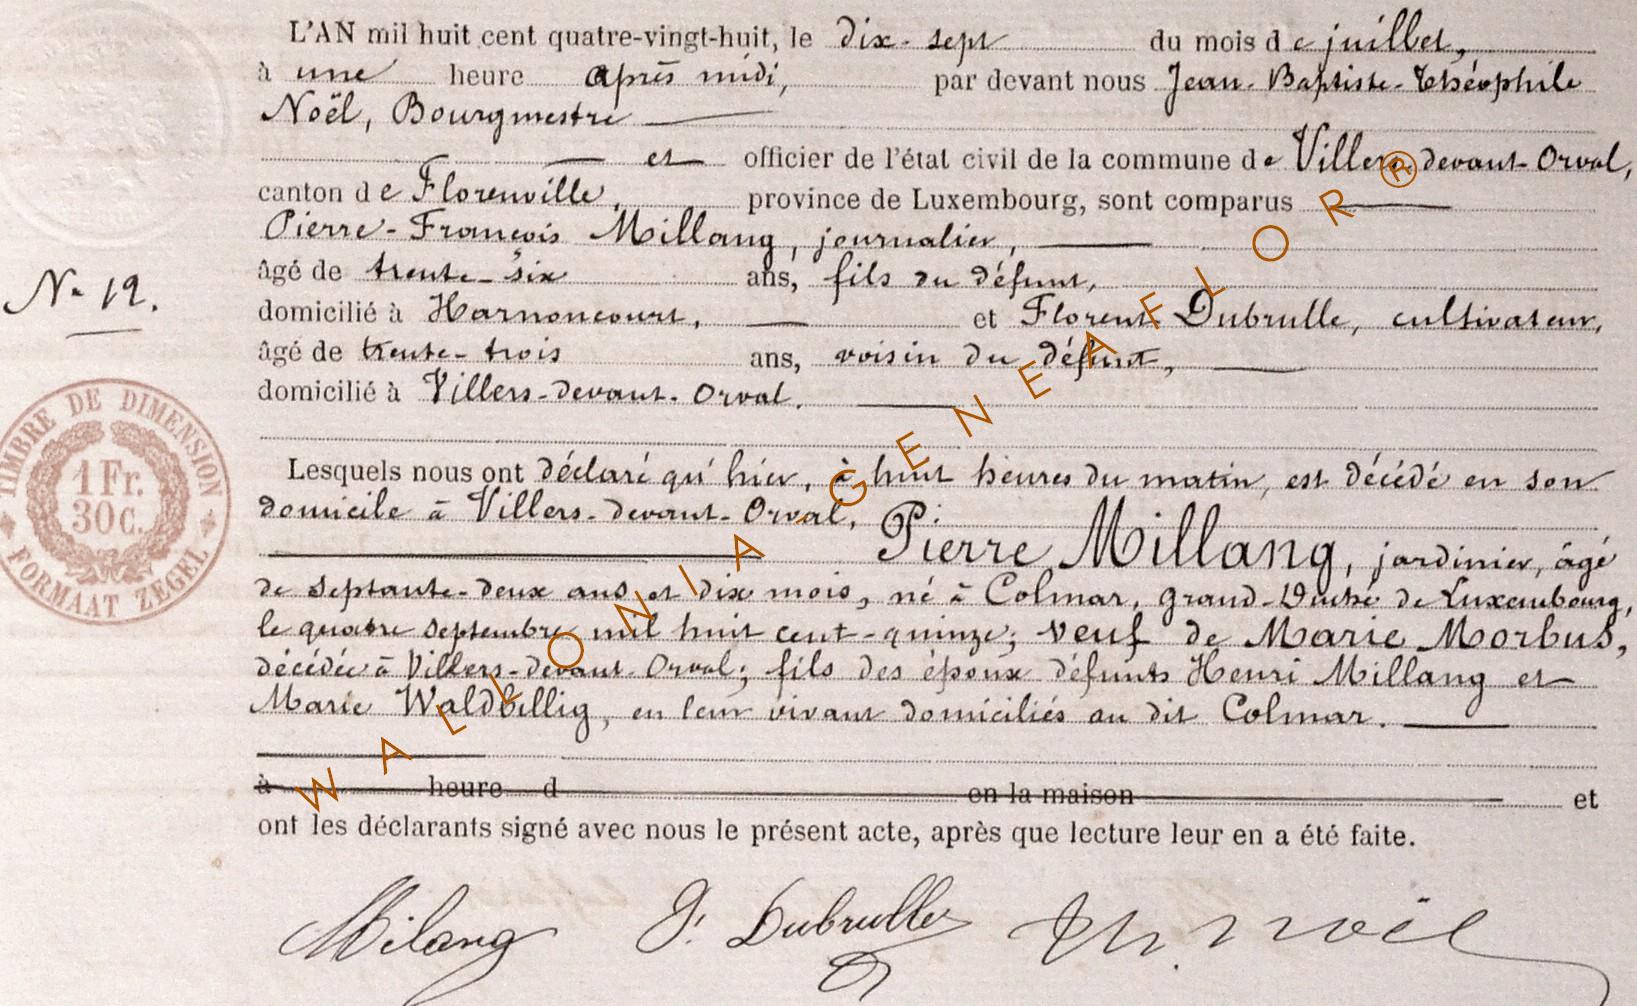 L'AN mil huit cent quatre-vingt-huit, le dix-sept du mois de juillet,
à une heure après midi, par devant nous Jean-Baptiste-Théophile
Noël, Bourgmestre
et officier de l'état civil de la commune de Villers-devant-Orval,
canton de Florenville, province de Luxembourg, sont comparus
Pierre-François Millang, journalier,
âgé de trente-six ans, fils du défunt,
N° 12.
domicilié à Harnoncourt, et Florent Dubrulle, cultivateur,
âgé de trente-trois ans, voisin du défunt,
domicilié à Villers-devant-Orval.
TIMBRE DE DIMENSION
1 Fr.
30 C.
FORMAAT ZEGEL
Lesquels nous ont déclaré qu'hier, à huit heures du matin, est décédé en son
domicile à Villers-devant-Orval, P:
Pierre Millang, jardinier, âgé
de septante-deux ans et dix mois, né à Colmar, grand-Duché de Luxembourg,
le quatre septembre mil huit cent-quinze; veuf de Marie Morbus,
décédée à Villers-devant-Orval; fils des époux défunts Henri Millang et
Marie Waldbillig, en leur vivant domiciliés au dit Colmar.
à heure d en la maison et
ont les déclarants signé avec nous le présent acte, après que lecture leur en a été faite.
Milang F. Dubrulle Th. Noël
WALLONIA GENEAFLOR®